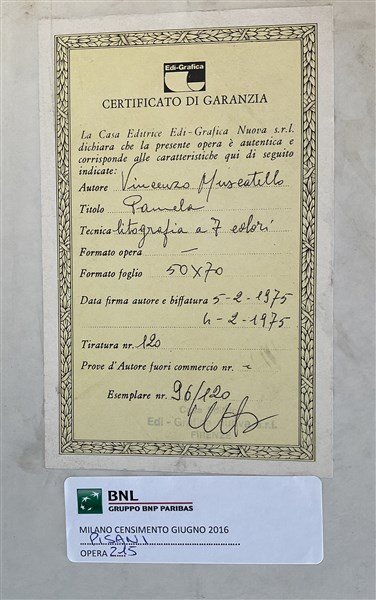 Edi-Grafica
CERTIFICATO DI GARANZIA
La Casa Editrice Edi-Grafica Nuova s.r.l.
dichiara che la presente opera è autentica e
corrisponde alle caratteristiche qui di seguito
indicate:
Autore Vincenzo Muscatello
Titolo Pamela
Tecnica litografia a 7 colori
Formato opera —
Formato foglio 50x70
Data firma autore e biffatura 5-2-1975
6-2-1975
Tiratura nr. 120
Prove d'Autore fuori commercio nr. -
Esemplare nr. 96/120
Edi - Nuova s.r.l.
FIRENZE
BNL
GRUPPO BNP PARIBAS
MILANO CENSIMENTO GIUGNO 2016
PISANI
OPERA 215